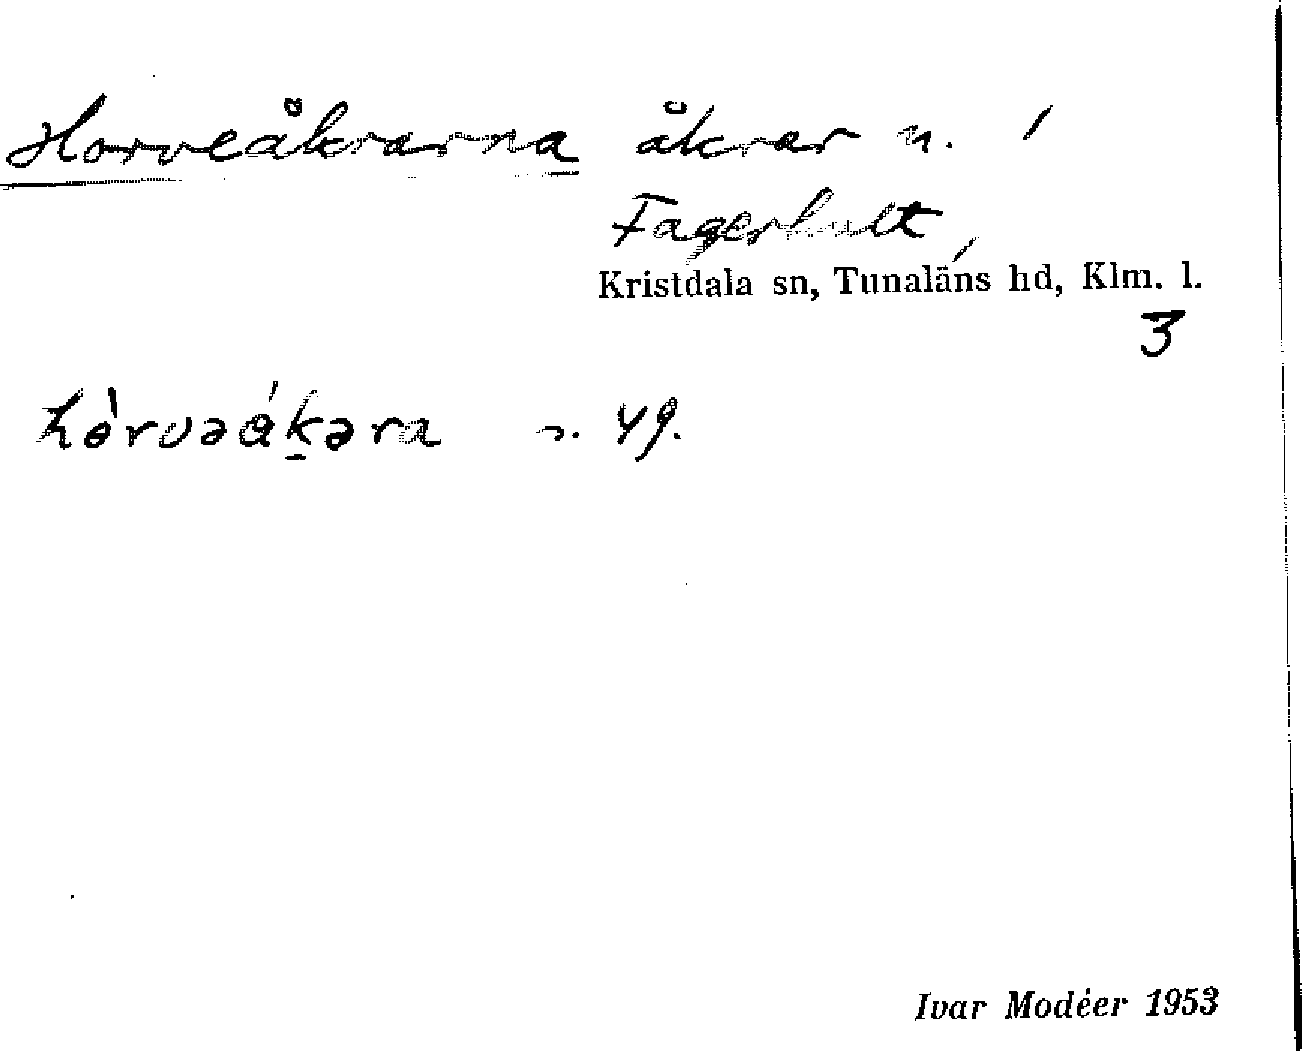 Horveåkrarna åkrar n. i
Fagerhult,
Kristdala sn, Tunaläns hd, Klm. l.
3
49.
Ivar Modéer 1953